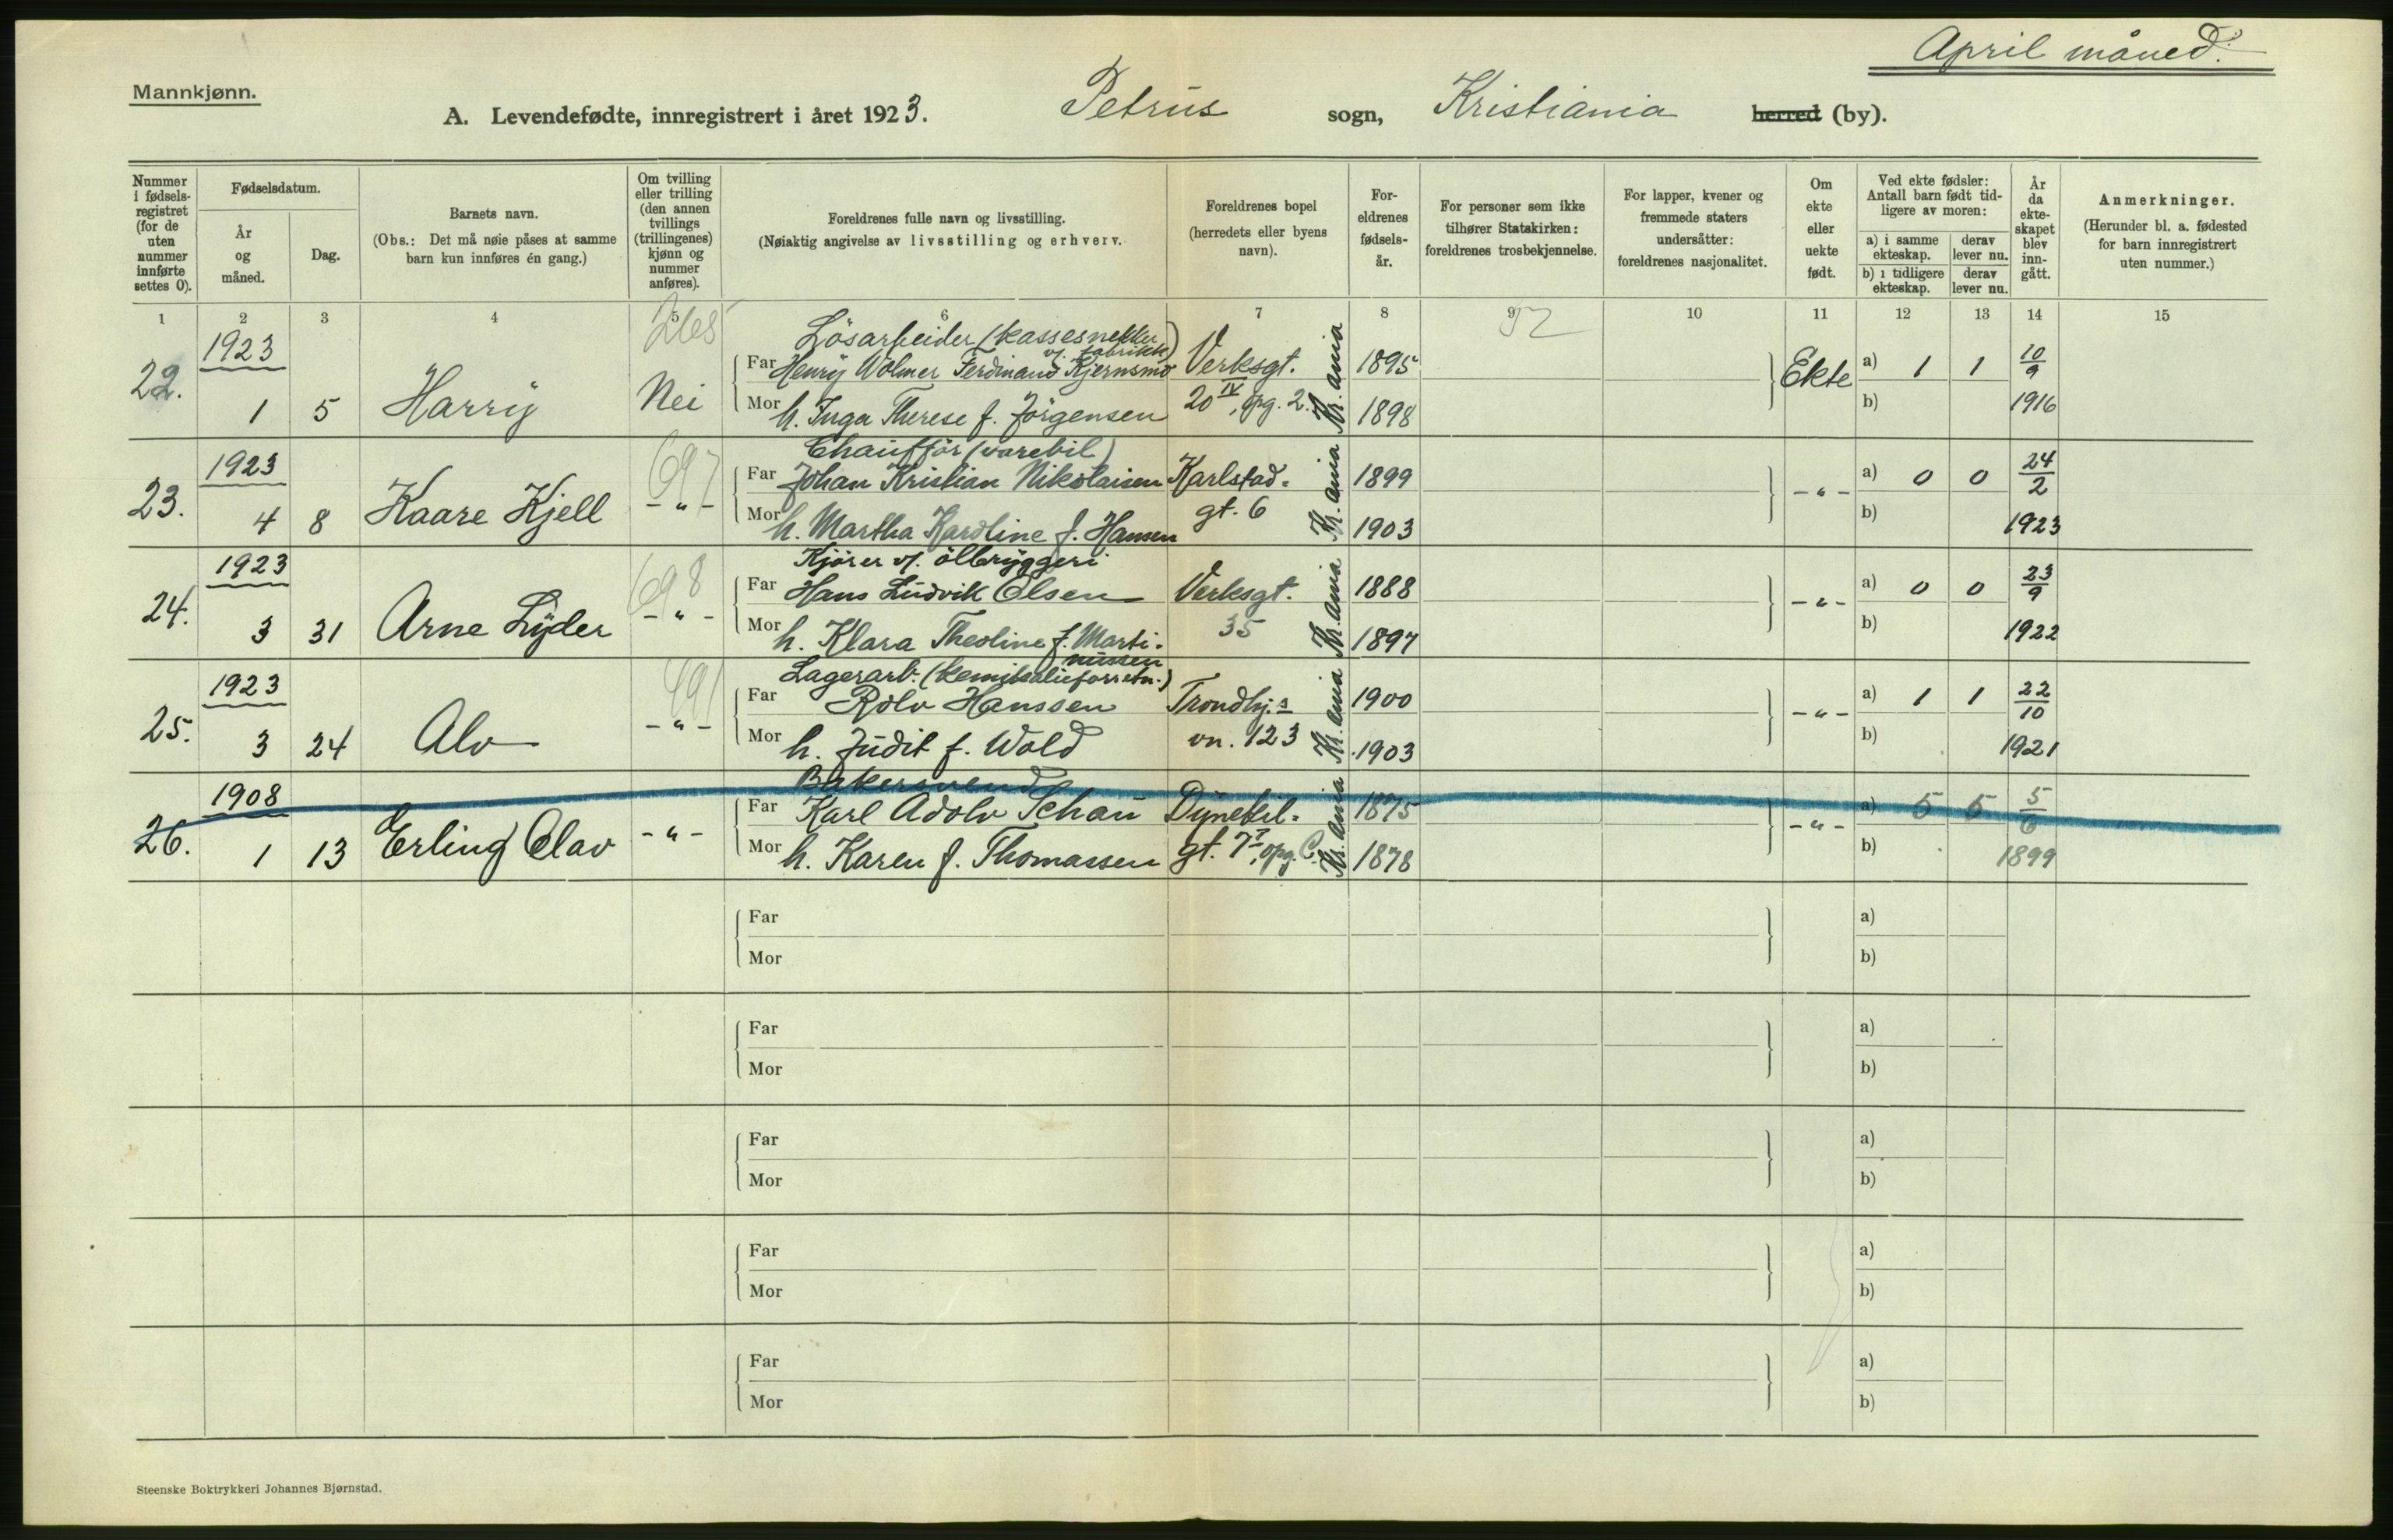 April måned.
Mannkjønn.
A. Levendefødte, innregistrert i året 1923. Petrus sogn, Kristiania herred (by).
Nummer i fødsels-registret (for de uten nummer innførte settes 0).
Fødselsdatum.
År og måned.
Dag.
Barnets navn.
(Obs.: Det må nøie påses at samme barn kun innføres én gang.)
Om tvilling eller trilling (den annen tvillings (trillingenes) kjønn og nummer anføres).
Foreldrenes fulle navn og livsstilling.
(Nøiaktig angivelse av livsstilling og erhverv.
Foreldrenes bopel (herredets eller byens navn).
For-eldrenes fødsels-år.
For personer som ikke tilhører Statskirken: foreldrenes trosbekjennelse.
For lapper, kvener og fremmede staters undersåtter: foreldrenes nasjonalitet.
Om ekte eller uekte født.
Ved ekte fødsler: Antall barn født tid-ligere av moren:
a) i samme ekteskap.
derav lever nu.
b) i tidligere ekteskap.
derav lever nu.
År da ekte-skapet blev inn-gått.
Anmerkninger.
(Herunder bl. a. fødested for barn innregistrert uten nummer.)
1 2 3 4 5 6 7 8 9 10 11 12 13 14 15
265 92
22. 1923 1 5 Harry Nei
Løsarbeider (kassesnekker v. fabrikk)
Far Henry Wolmer Ferdinand Kjernsmo Verksgt. 1895 Ekte a) 1 1 10/9
Mor h. Inga Therese f. Jørgensen 20 IV, opg. 2. Kr.ania 1898 b) 1916
23. 1923 4 8 Kaare Kjell 697 -"-
Chauffør (varebil)
Far Johan Kristian Nikolaisen Karlstad- 1899 -"- a) 0 0 24/2
Mor h. Martha Karoline f. Hansen gt. 6 Kr.ania 1903 b) 1923
24. 1923 3 31 Arne Lyder 698 -"-
Kjører v. ølbryggeri
Far Hans Ludvik Olsen Verksgt. 1888 -"- a) 0 0 23/9
Mor h. Klara Theoline f. Marti-nussen 35 Kr.ania 1897 b) 1922
25. 1923 3 24 Alv 491 -"-
Lagerarb. (kemikalieforretn.)
Far Rolv Hanssen Trondhj.s 1900 -"- a) 1 1 22/10
Mor h. Judit f. Wold vn. 123 Kr.ania 1903 b) 1921
26. 1908 1 13 Erling Olav -"-
Bakersvend
Far Karl Adolv Schau Dynekil- 1875 -"- a) 5 5 5/6
Mor h. Karen f. Thomassen gt. 7 I, opg. C. Kr.ania 1878 b) 1899
Far a)
Mor b)
Far a)
Mor b)
Far a)
Mor b)
Far a)
Mor b)
Far a)
Mor b)
Steenske Boktrykkeri Johannes Bjørnstad.